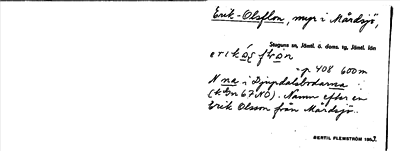 Erik-Olsflon, myr i Mårdsjö,
Stuguns sn, Jämtl. ö. doms. tg, Jämtl. län
408 600 m
N na i Djupdalsbodarna
(k Gu 67 NO). Namn efter en
Erik Olsson från Mårdsjö.
BERTIL FLEMSTRÖM 196